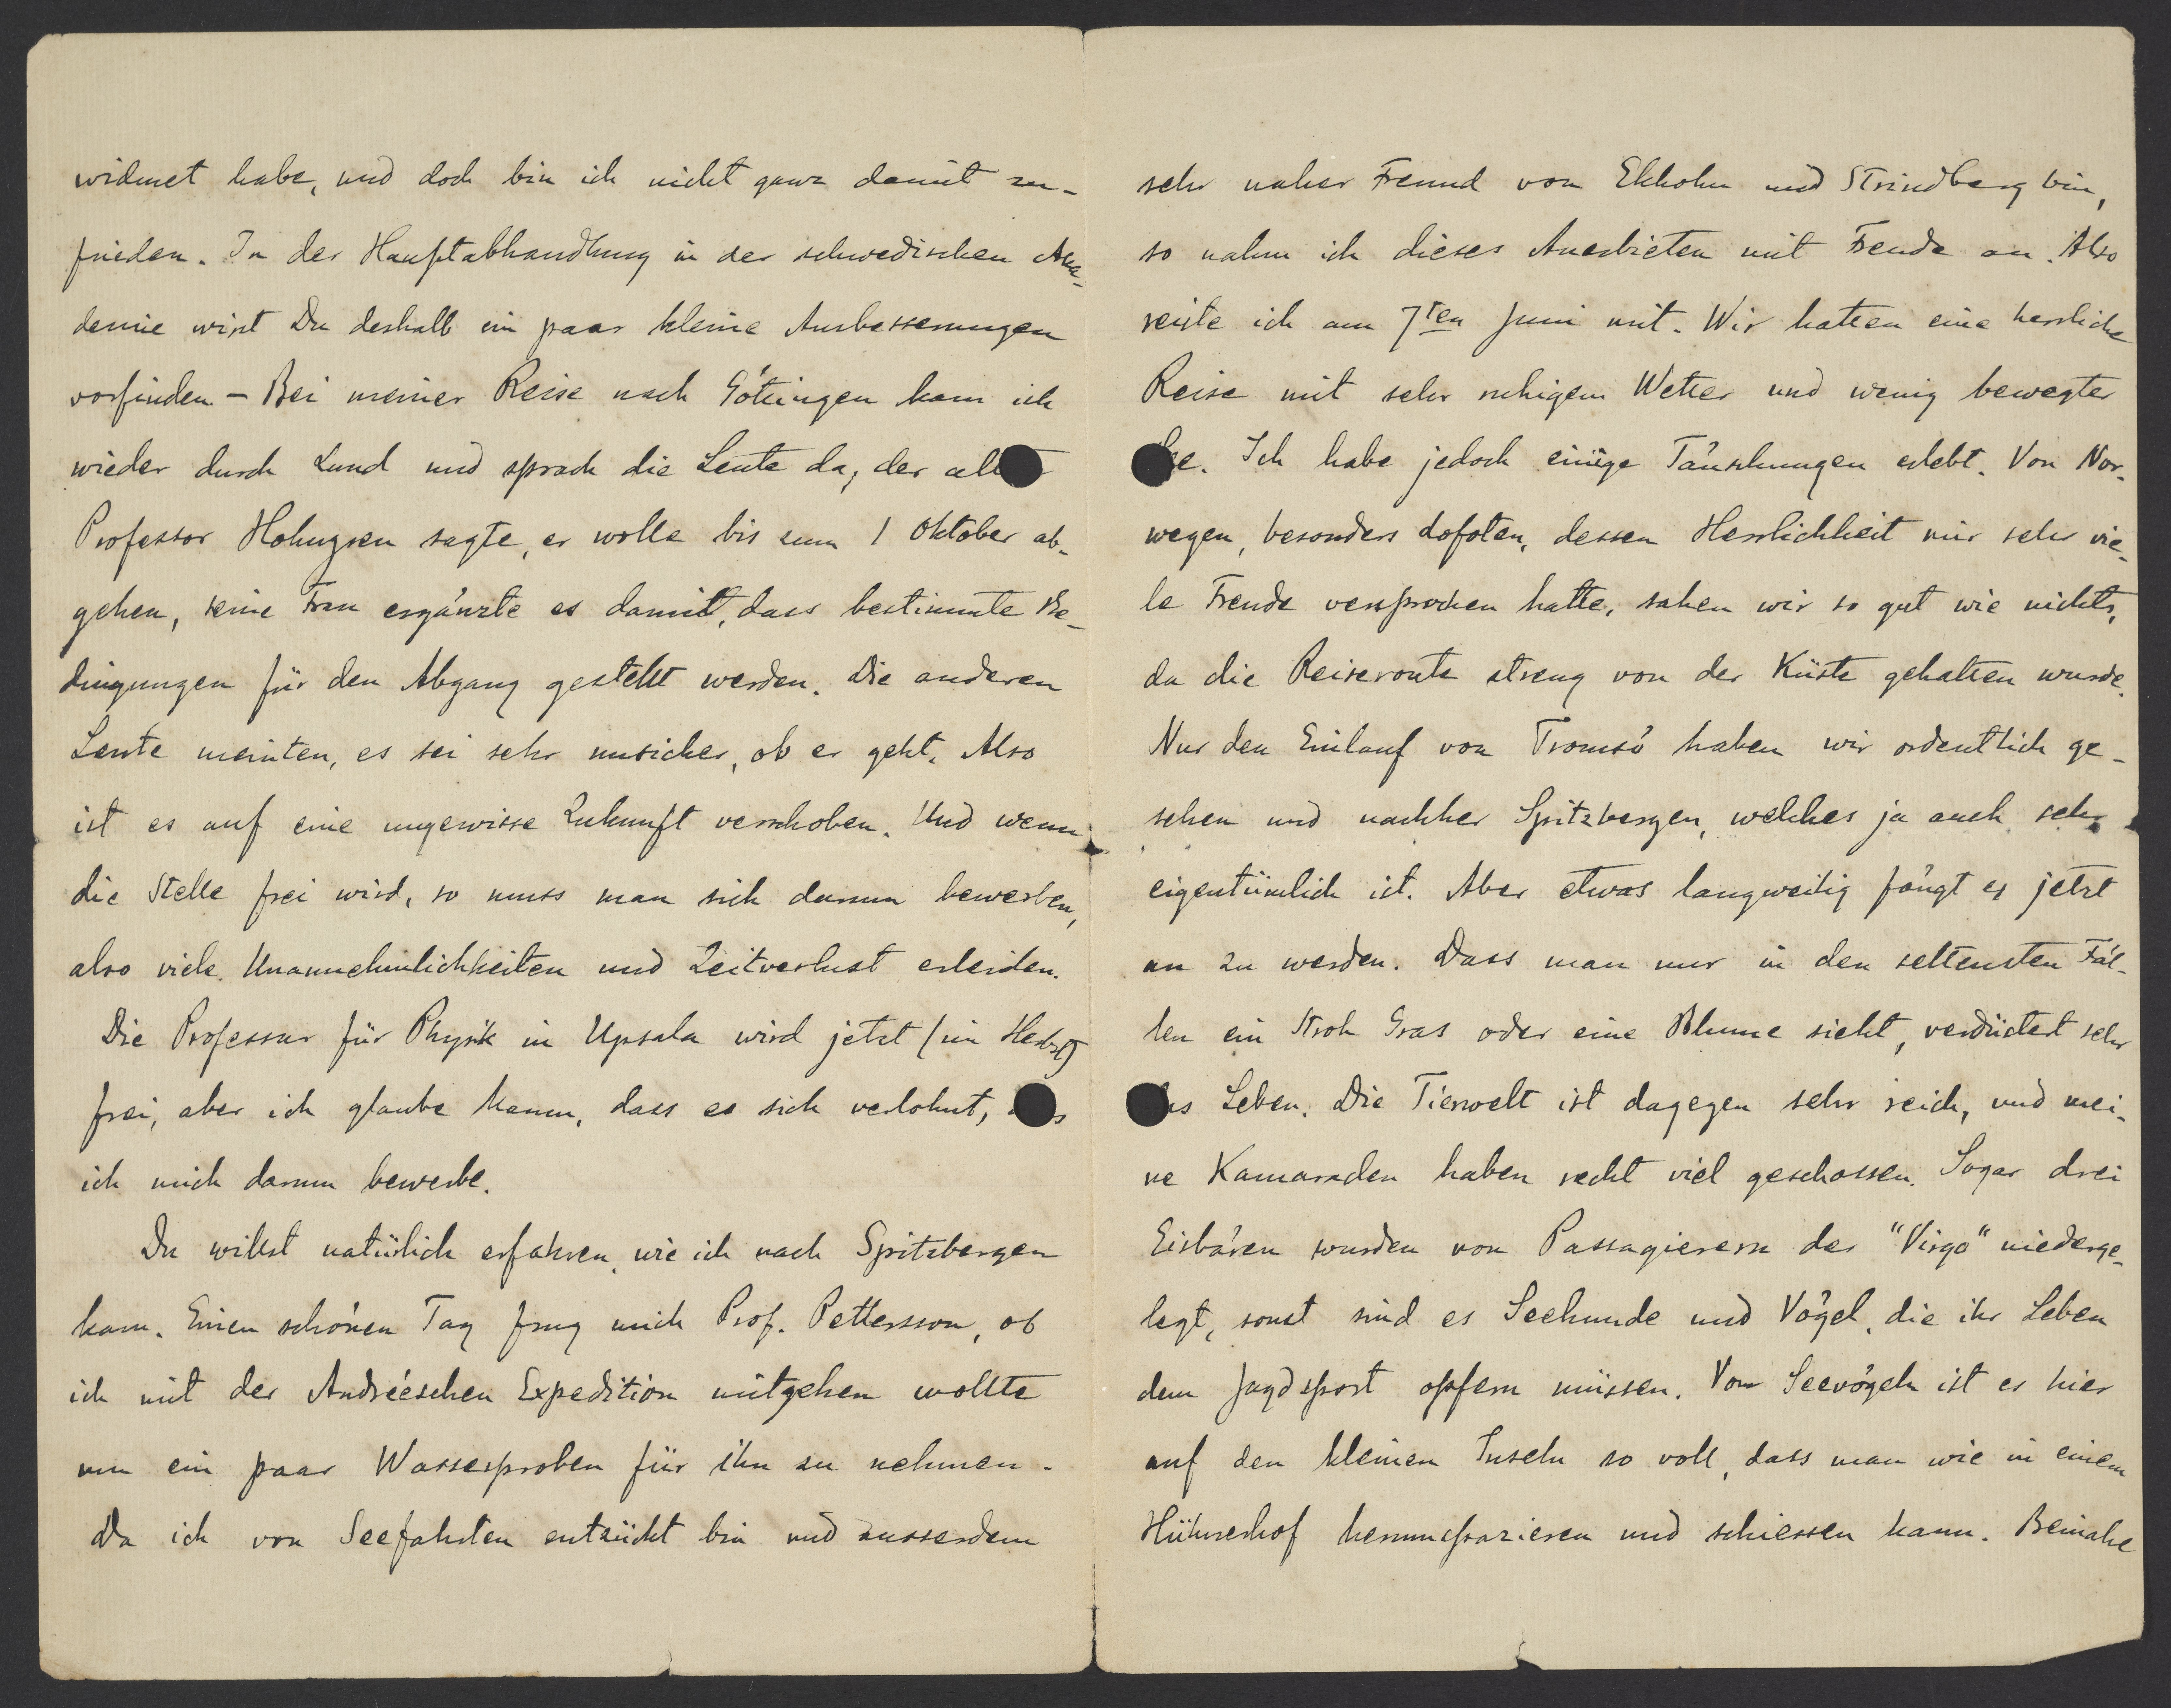 widmet habe, und doch bin ich nicht ganz damit zu-
frieden. In der Hauptabhandlung in der schwedischen Aka-
demie wirst Du deshalb ein paar kleine Ausbesserungen
vorfinden – Bei meiner Reise nach Göttingen kam ich
wieder durch Lund und sprach die Leute da, der alte
Professor Holmgren sagte, er wolle bis zum 1 Oktober ab-
gehen, seine Frau ergänzte es damit, dass bestimmte Be-
dingungen für den Abgang gestellt werden. Die anderen
Leute meinten, es sei sehr unsicher, ob er geht. Also
ist es auf eine ungewisse Zukunft verschoben. Und wenn
die Stelle frei wird, so muss man sich darum bewerben,
also viele Unannehmlichkeiten und Zeitverlust erleiden.
Die Professur für Physik in Upsala wird jetzt (im Herbst)
frei, aber ich glaube kaum, dass es sich verlohnt,
ich mich darum bewerbe.
Du willst natürlich erfahren, wie ich nach Spitzbergen
kam. Einen schönen Tag frug mich Prof. Pettersson, ob
ich mit der Andréeschen Expedition mitgehen wollte
um ein paar Wasserproben für ihn zu nehmen.
Da ich von Seefahrten entzückt bin und ausserdem
sehr naher Freund von Ekholm und Strindberg bin,
so nahm ich dieses Anerbieten mit Freude an. Also
reiste ich am 7ten Juni mit. Wir hatten eine herrliche
Reise mit sehr ruhigem Wetter und wenig bewegter
See. Ich habe jedoch einige Täuschungen erlebt. Von Nor-
wegen, besonders Lofoten, dessen Herrlichkeit mir sehr vie-
le Freude versprochen hatte, sahen wir so gut wie nichts,
da die Reiseroute streng von der Küste gehalten wurde.
Nur den Einlauf von Tromsö haben wir ordentlich ge-
sehen und nachher Spitzbergen, welches ja auch sehr
eigentümlich ist. Aber etwas langweilig fängt es jetzt
an zu werden. Dass man nur in den seltensten Fäl-
len ein Stroh Gras oder eine Blume sieht, verdüstert sehr
das Leben. Die Tierwelt ist dagegen sehr reich, und mei-
ne Kamaraden haben recht viel geschossen. Sogar drei
Eisbären wurden von Passagierern der "Virgo" niederge-
legt, sonst sind es Seehunde und Vögel, die ihr Leben
dem Jagdsport opfern müssen. Von Seevögeln ist es hier
auf den kleinen Inseln so voll, dass man wie in einem
Hühnerhof herumspazieren und schiessen kann. Beinahe